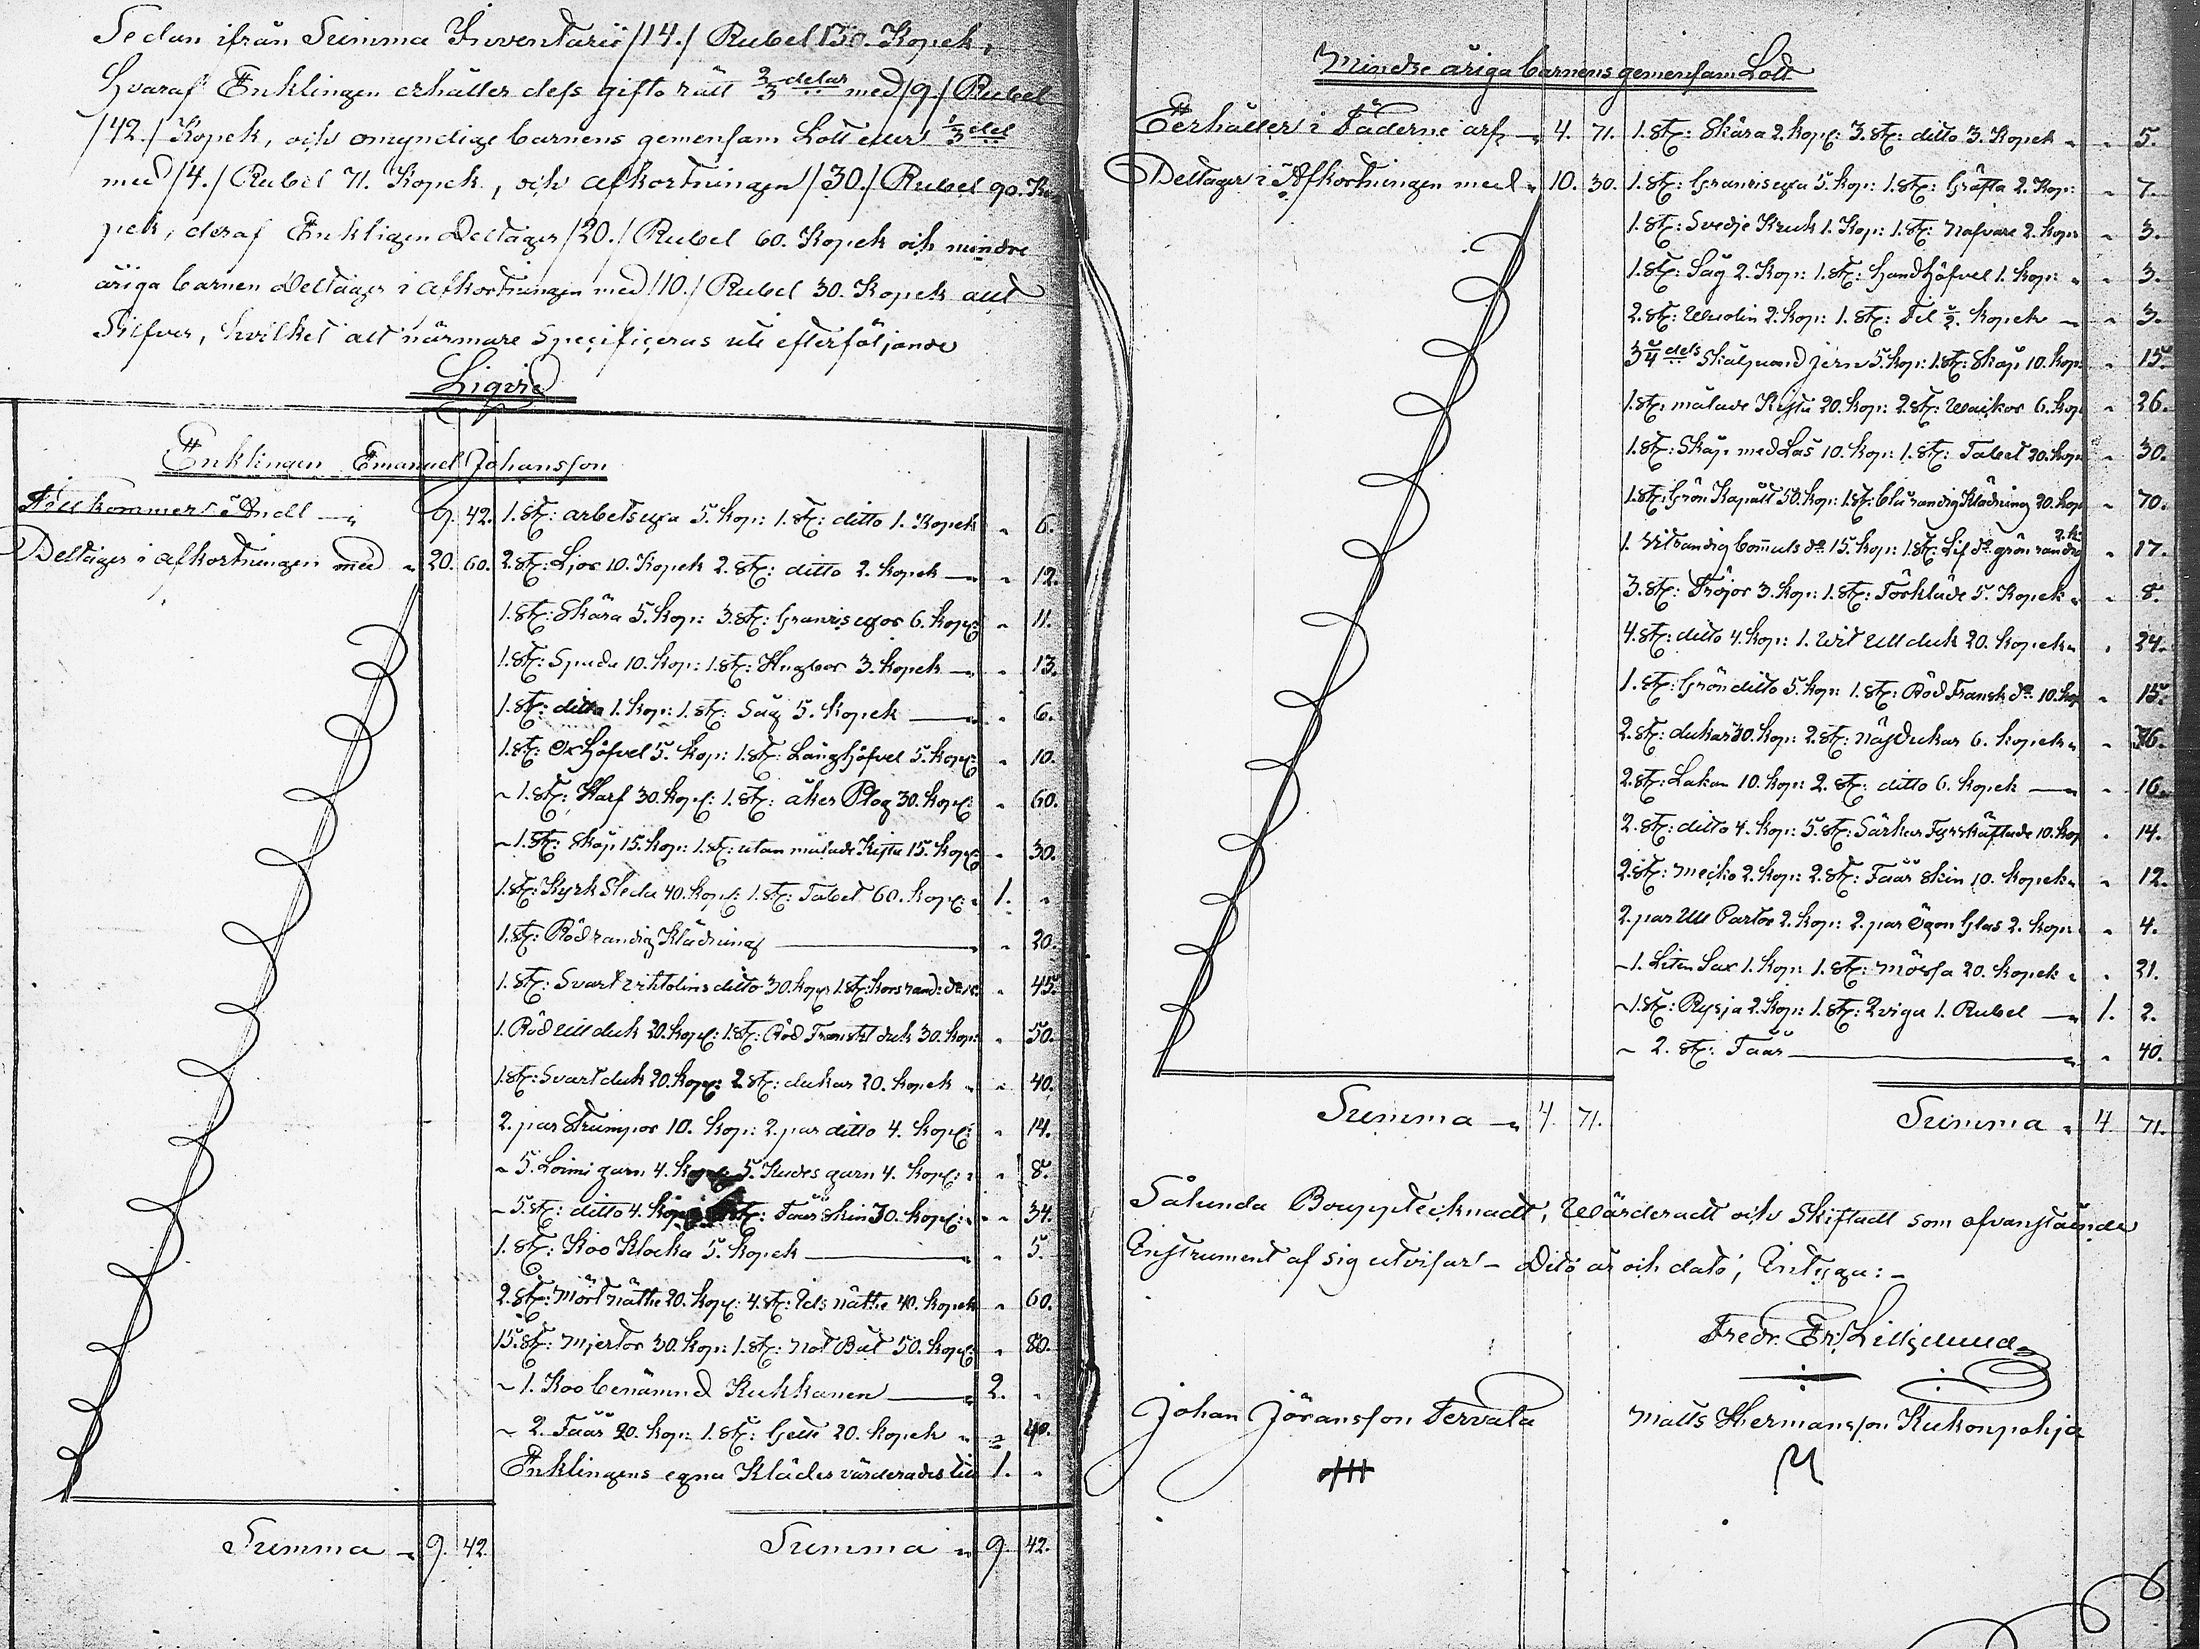 Sedan ifrån Summa Inventarii /14./ Rubel 13. Kopek,
Hvaraf Enklingen erhåller dess gifto rätt 2/3 delar med /9./ Rubel
/42./ Kopek, och omyndige barnens gemensam Lott eller 1/3 del
med /4./ Rubel 71. Kopek, och afkortningen /30./ Rubel 90. Ko-
pek, deraf Enkligen Deltager /20./ Rubel 60. Kopek och mindre
åriga barnen Deltager i afkortningen med /10./ Rubel 30. Kopek allt
Silfver, hvilket alt närmare Specificeras uti efterföljande
Liqvid
Enklingen Emanuel Johansson
Tillkommer i Andl — 9. 42. 1. st: arbets yxa 5. kop: 1. st: ditto 1. Kopek " 6.
Deltager i afkortningen med " 20. 60. 2. st: Ljor 10. Kopek 2. st: ditto 2. kopek — " 12.
1. st: Skära 5. kop: 3. st: Granris yxor 6. kop: " 11.
1. st: Spada 10. kop: 1. st: Hugbor 3. kopek — " 13.
1. st: ditto 1. kop: 1. st: Såg 5. kopek — " 6.
1. st: Ox Höfvel 5. kop: 1. st: Långhöfvel 5. kop: " 10.
~ 1. st: Harf 30. kop: 1. st: åker Plog 30. kop: " 60.
~ 1. st: Skåp 15. kop: 1. st: utan målade Kista 15. kop: " 30.
1. st: Kyrk Sleda 40. kop: 1. st: Tabet 60. kop: " 1. "
1. st: Röd randig Klädning — " 20.
1. st: Svart ditto 30. kop: 1. st: kors rand: do 15. " 45.
1. Röd Ull duk 20. kop: 1. st: Röd Franskt duk 30. kop: " 50.
1. st: Svart duk 20. kop: 2. st: dukar 20. kopek " " 40.
2. par Strumpor 10. kop: 2. par ditto 4. kop: " 14.
~ 5. Loimi garn 4. kop: 5. Kudes garn 4. kop: " " 8.
~ 5. st: ditto 4. kop: st: Fåår skin 30. kop: " " 34.
1. st: Koo Klocka 5. kopek — " 5.
2. st: Mört näthe 20. kop: 4. st: Ids näthe 40. kopek " 60.
15. st: Mjertor 30. kop: 1. st: Not Båt 50. kop: " 80.
~ 1. Koo benämnd Kukkanen — 2. "
~ 2. Fåår 20. kop: 1. st: Gett 20. kopek " " 40.
Enklingens egna Kläder värderades till 1. "
Summa " 9. 42. Summa " 9. 42.
Mindre åriga barnens gemensam Lott
Eerhåller i Fäderne arf — 4. 71. 1. st: Skära 2. kop: 3. st: ditto 3. Kopek " " 5.
Deltager i Afkortningen med " 10. 30. 1. st: Granris yxa 5. kop: 1. st: Gräfta 2. Kop: " 7.
1. st: Svedje Kruk 1. Kop: 1. st: Nafvare 2. kop: " 3.
1. st: Såg 2. Kop: 1. st: Hand Höfvel 1. kop: " " 3.
2. st: 2. kop: 1. st: Fil 1/2. kopek — " 3.
3/4 dels Skålpund Jern 5. kop: 1. st: Skåp 10. kop: " 15.
1. st: målade Kista 20. kop: 2. st: 6. kop: " 26.
1. st: Skåp med Lås 10. kop: 1. st: Tabet 20. kop: " 30.
1. st: Grön Kapatt 50. kop: 1. st: blå randig Klädning 20. kop: " 70.
1. Vit randig bomuls do 15. kop: 1. st: Lif do grön randig 2. k: " 17.
3. st: Tröjor 3. kop: 1. st: Förkläde 5. Kopek " " 8.
4. st: ditto 4. kop: 1. Vit Ull duk 20. kopek " " 24.
1. st: Grön ditto 5. kop: 1. st: Röd Fransk do 10. kop " 15.
2. st: dukar 30. kop: 2. st: näsdukar 6. kopek " " 36.
2. st: Lakan 10. kop: 2. st: ditto 6. kopek — " 16.
2. st: ditto 4. kop: 5. st: Särkar Fyrskäftade 10. kop " 14.
2. st: mecko 2. kop: 2. st: Fåår skin 10. kopek " " 12.
2. par Ull Partor 2. kop: 2. par Ögon Glas 2. kop: " 4.
~ 1. Liten Sax 1. kop: 1. st: mössa 20. kopek " " 21.
~ 1. st: Rysja 2. kop: 1. st: Qviga 1. Rubel — 1. 2.
~ 2. st: Fåår — " 40.
Summa " 4. 71. Summa " 4. 71.
Sålunda Bouppteknadt, Wärderadt och Skiftadt som ofvanstående
Instrument af sig utvisar — Ditö år och dato; Intyga: —
Fredr. Er: Liljelund
Johan Jöransson Tervala Matts Hermansson Kukonpohja